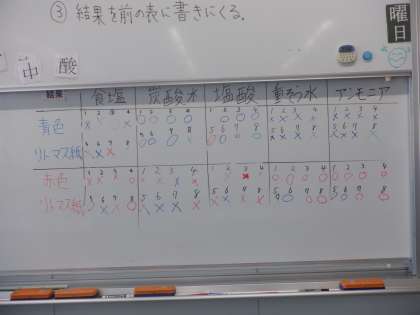 ③ 結果を前の表に書きにくる。
曜日
中 酸
結果 食塩 炭酸水 塩酸 重そう水 アンモニア
青色 1 2 3 4 1 2 3 4 1 2 3 4 1 2 3 4 1 2 3 4
リトマス紙 5 6 7 8 5 6 7 8 5 6 7 8 5 6 7 8 5 6 7 8
赤色 1 2 3 4 1 2 3 4 1 2 3 4 1 2 3 4 1 2 3 4
リトマス紙 5 6 7 8 5 6 7 8 5 6 7 8 5 6 7 8 5 6 7 8